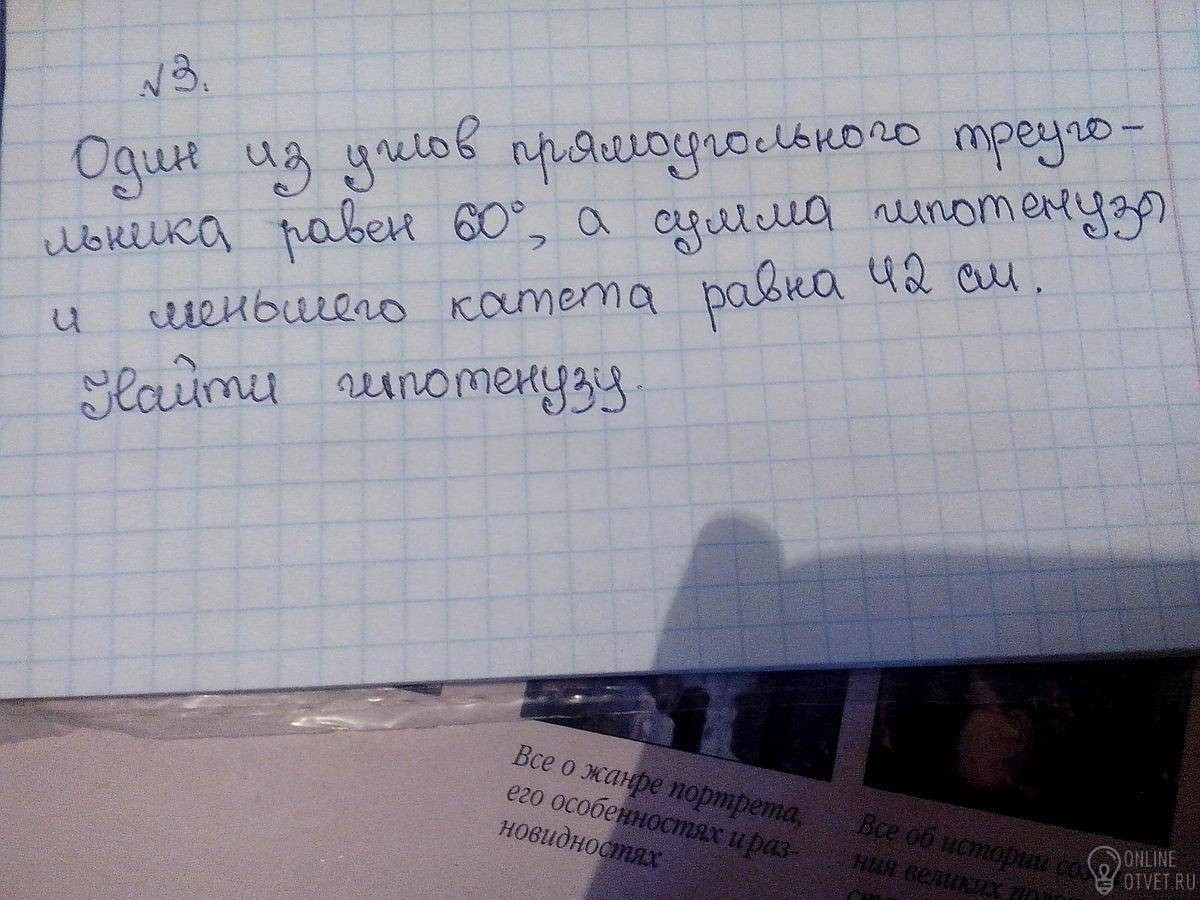 №3.
Один из углов прямоугольного треуго-
льника равен 60°, а сумма гипотенузы
и меньшего катета равна 42 см.
Найти гипотенузу.
Все о жанре портрета,
его особенностях и раз-
новидностях
Все об истории
ния великих
ONLINE
OTVET.RU